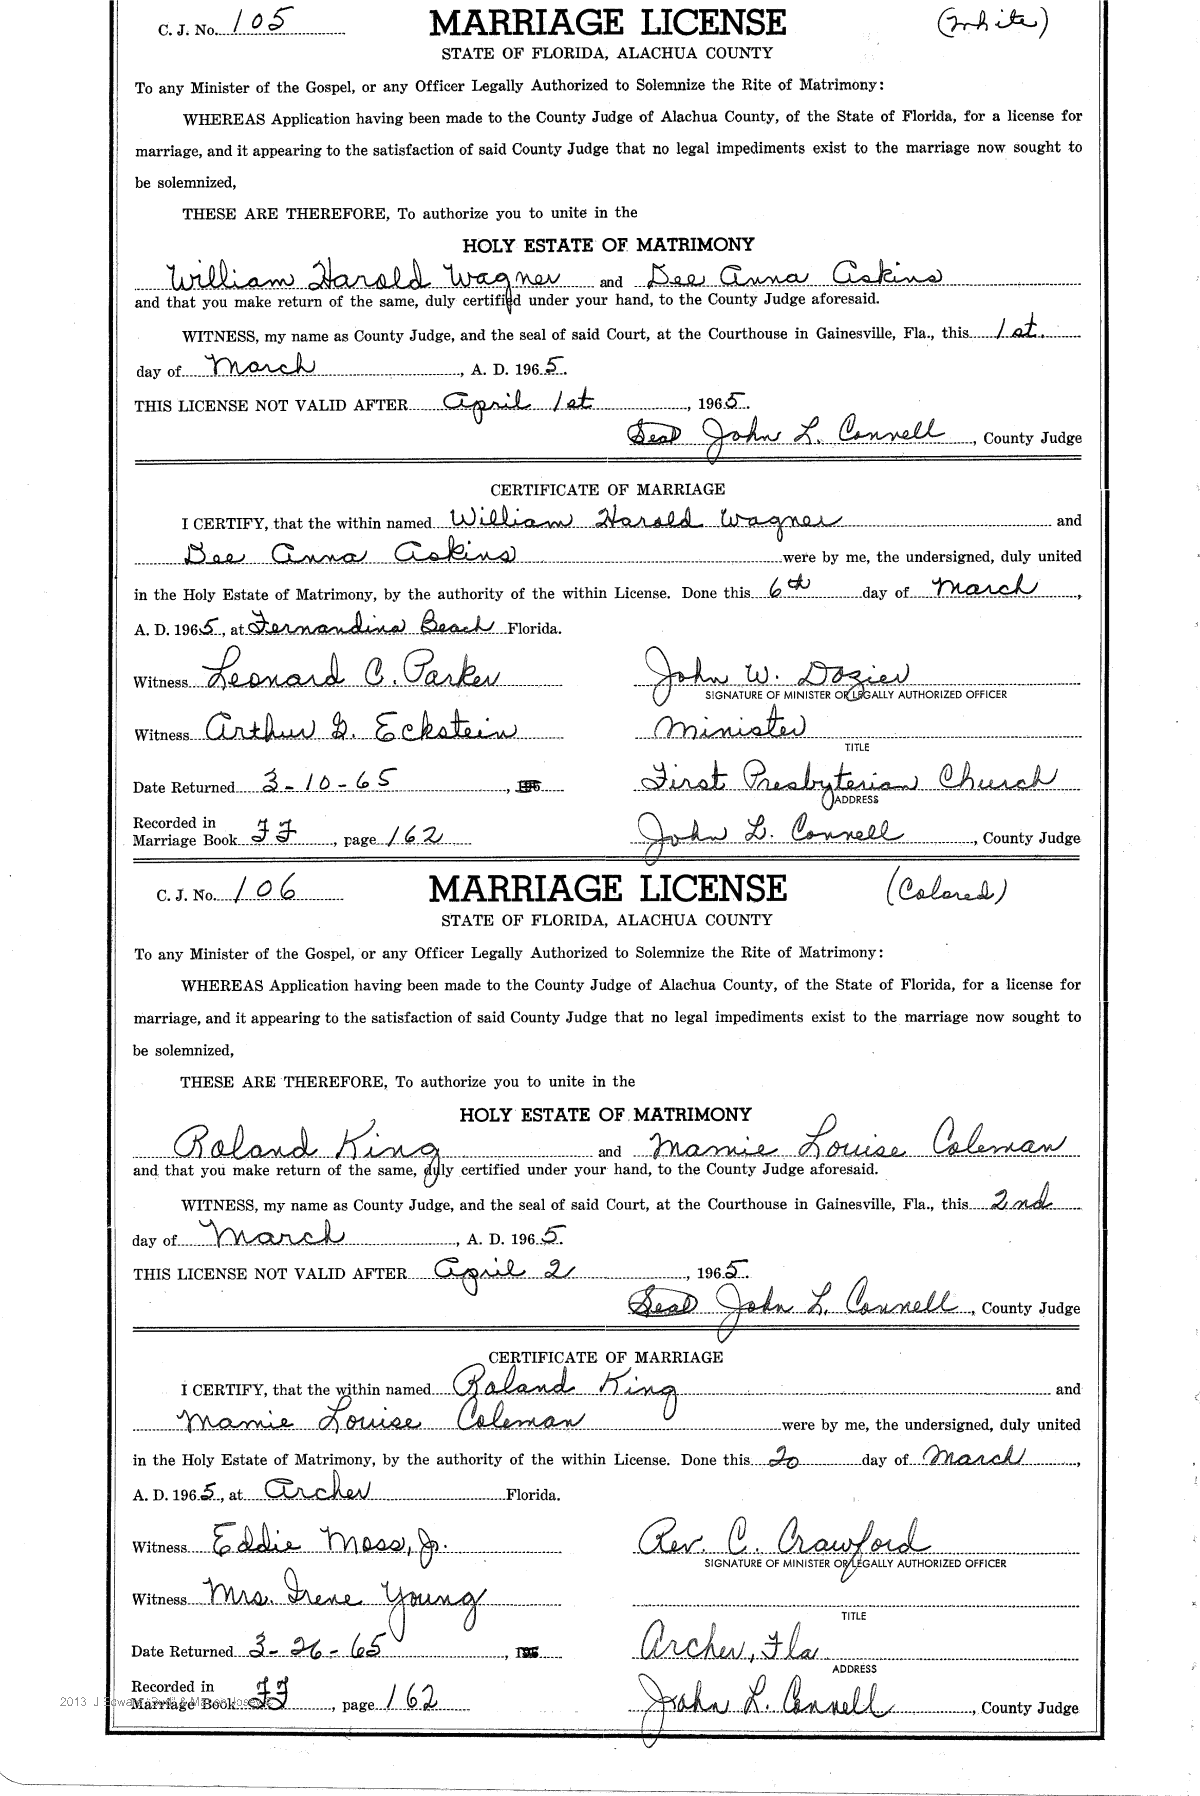 C. J. No. 105 MARRIAGE LICENSE (White)
STATE OF FLORIDA, ALACHUA COUNTY
To any Minister of the Gospel, or any Officer Legally Authorized to Solemnize the Rite of Matrimony:
WHEREAS Application having been made to the County Judge of Alachua County, of the State of Florida, for a license for
marriage, and it appearing to the satisfaction of said County Judge that no legal impediments exist to the marriage now sought to
be solemnized,
THESE ARE THEREFORE, To authorize you to unite in the
HOLY ESTATE OF MATRIMONY
William Harold Wagner and Dee Anna Askins
and that you make return of the same, duly certified under your hand, to the County Judge aforesaid.
WITNESS, my name as County Judge, and the seal of said Court, at the Courthouse in Gainesville, Fla., this 1st.
day of March, A. D. 1965.
THIS LICENSE NOT VALID AFTER April 1st, 1965.
Seal John L. Connell, County Judge
CERTIFICATE OF MARRIAGE
I CERTIFY, that the within named William Harold Wagner and
Dee Anna Askins were by me, the undersigned, duly united
in the Holy Estate of Matrimony, by the authority of the within License. Done this 6th day of March,
A. D. 1965, at Fernandina Beach Florida.
Witness Leonard C. Parker John W. Dozier
SIGNATURE OF MINISTER OR LEGALLY AUTHORIZED OFFICER
Witness Arthur G. Eckstein Minister
TITLE
Date Returned 3-10-65, First Presbyterian Church
ADDRESS
Recorded in
Marriage Book FF, page 162 John L. Connell, County Judge
C. J. No. 106 MARRIAGE LICENSE (Colored)
STATE OF FLORIDA, ALACHUA COUNTY
To any Minister of the Gospel, or any Officer Legally Authorized to Solemnize the Rite of Matrimony:
WHEREAS Application having been made to the County Judge of Alachua County, of the State of Florida, for a license for
marriage, and it appearing to the satisfaction of said County Judge that no legal impediments exist to the marriage now sought to
be solemnized,
THESE ARE THEREFORE, To authorize you to unite in the
HOLY ESTATE OF MATRIMONY
Roland King and Mamie Louise Coleman
and that you make return of the same, duly certified under your hand, to the County Judge aforesaid.
WITNESS, my name as County Judge, and the seal of said Court, at the Courthouse in Gainesville, Fla., this 2nd
day of March, A. D. 1965.
THIS LICENSE NOT VALID AFTER April 2, 1965.
Seal John L. Connell, County Judge
CERTIFICATE OF MARRIAGE
I CERTIFY, that the within named Roland King and
Mamie Louise Coleman were by me, the undersigned, duly united
in the Holy Estate of Matrimony, by the authority of the within License. Done this 20 day of March,
A. D. 1965, at Archer Florida.
Witness Eddie Moss, Jr. Rev. C. Crawford
SIGNATURE OF MINISTER OR LEGALLY AUTHORIZED OFFICER
Witness Mrs. Irene Young
TITLE
Date Returned 3-26-65, Archer, Fla
ADDRESS
Recorded in
Marriage Book FF, page 162 John L. Connell, County Judge
2013 J Edward